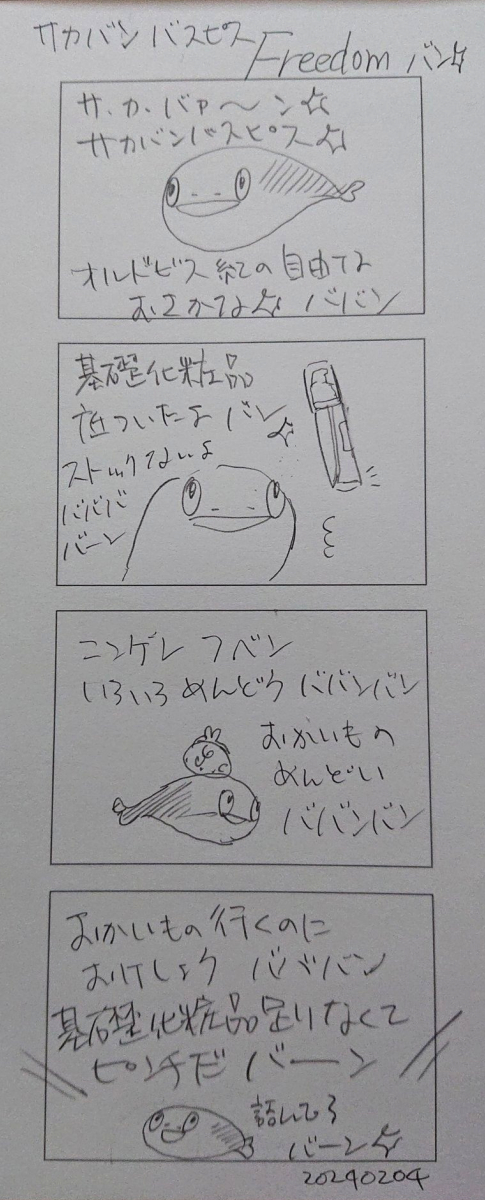 サカバンバスピス
Freedom バン☆
サ、カ、バァ〜ン☆
サカバンバスピス☆
オルドビス紀の自由な
おさかな☆ ババン
基礎化粧品
底ついたよ バン☆
ストックないよ
バババ
バーン
ニンゲン フベン
いろいろめんどう ババンバン
おかいもの
めんどい
ババンバン
おかいもの行くのに
おけしょう バババン
基礎化粧品足りなくて
ピンチだ バーン
詰んでる
バーン☆
20240204